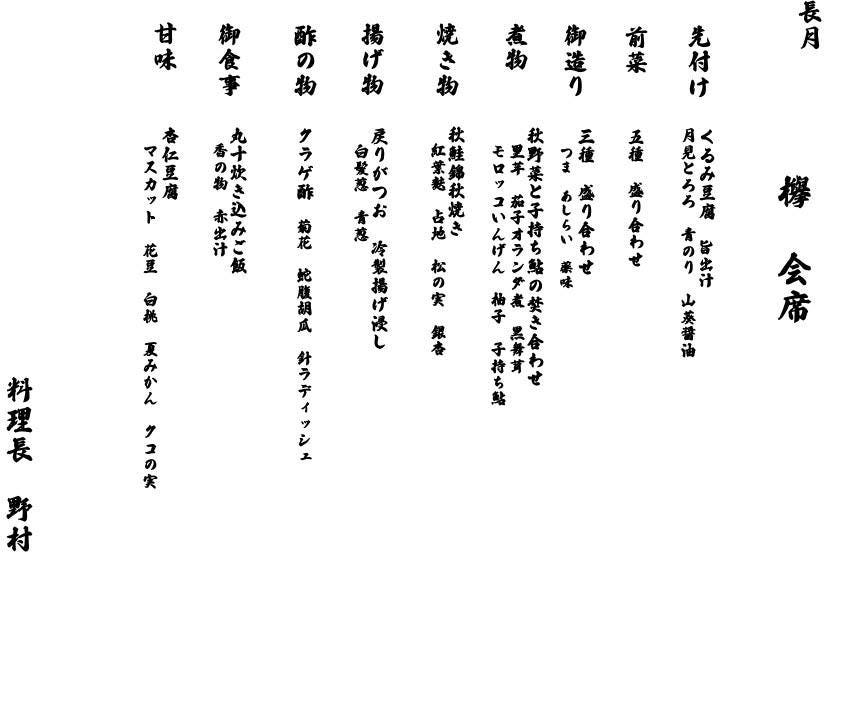 長月
欅 会席
先付け
くるみ豆腐 旨出汁
月見とろろ 青のり 山葵醤油
前菜
五種 盛り合わせ
御造り
三種 盛り合わせ
つま あしらい 薬味
煮物
秋野菜と子持ち鮎の焚き合わせ
里芋 茄子オランダ煮 黒舞茸
モロッコいんげん 柚子 子持ち鮎
焼き物
秋鮭錦秋焼き
紅葉麩 占地 松の実 銀杏
揚げ物
戻りがつお 冷製揚げ浸し
白髪葱 青葱
酢の物
クラゲ酢 菊花 蛇腹胡瓜 針ラディッシェ
御食事
丸十炊き込みご飯
香の物 赤出汁
甘味
杏仁豆腐
マスカット 花豆 白桃 夏みかん クコの実
料理長 野村